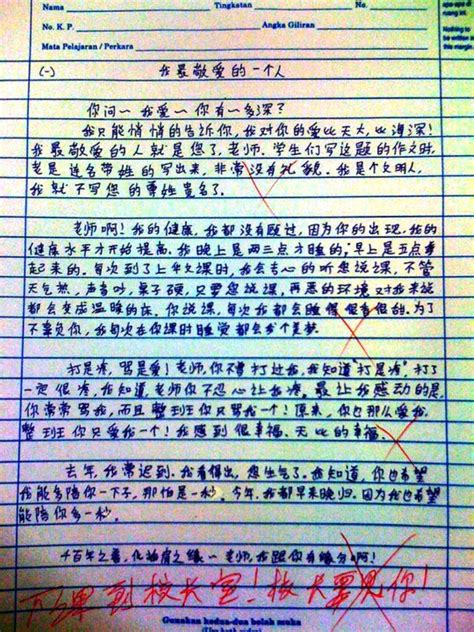 Nama
Tingkatan
No. K. P.
Angka Giliran
Mata Pelajaran / Perkara
(一) 我最敬爱的一个人
你问~我爱~你有~多深?
我只能悄悄的告诉你,我对你的爱比天大,比海深!
我最敬爱的人就是您了,老师。学生们写这题的作文时,
老是连名带姓的写出来,非常没有礼貌。我是个文明人,
我就不写您的尊姓贵名了。
老师啊!我的健康,我都没有顾过,因为你的出现,我的
健康水平才开始提高。我晚上是两三点才睡的,早上是五点看
起来的。每次到了上午文课时,我会专心的听您说课,不管
天气热,声音吵,桌子硬,只要您说课,再恶的环境对我来说
都会变成温暖的床,你说课,每次我都会睡很香很甜。为了
不辜负你,我每次在你课时睡觉都会发个美梦。
打是疼,骂是爱!老师,你不曾打过我,我知道"打是疼",打了
一定很疼,我知道,老师你不忍心让我疼。最让我感动的是,
你常常骂我,而且整班你只骂我一个!原来,你也那么爱我,
整班你只爱我一个!我感到很幸福、无比的幸福。
去年,我常迟到。我看得出,您生气了。我知道,你也希望
我能多陪你一下子,那怕是一秒。今年,我都早来晚归。因为我也希望
能陪你多一秒。
千百年之善,化油肩之缘~老师,我跟你有缘分啊!
下课到校长室!校长要见你!
Gunakan kedua-dua belah muka